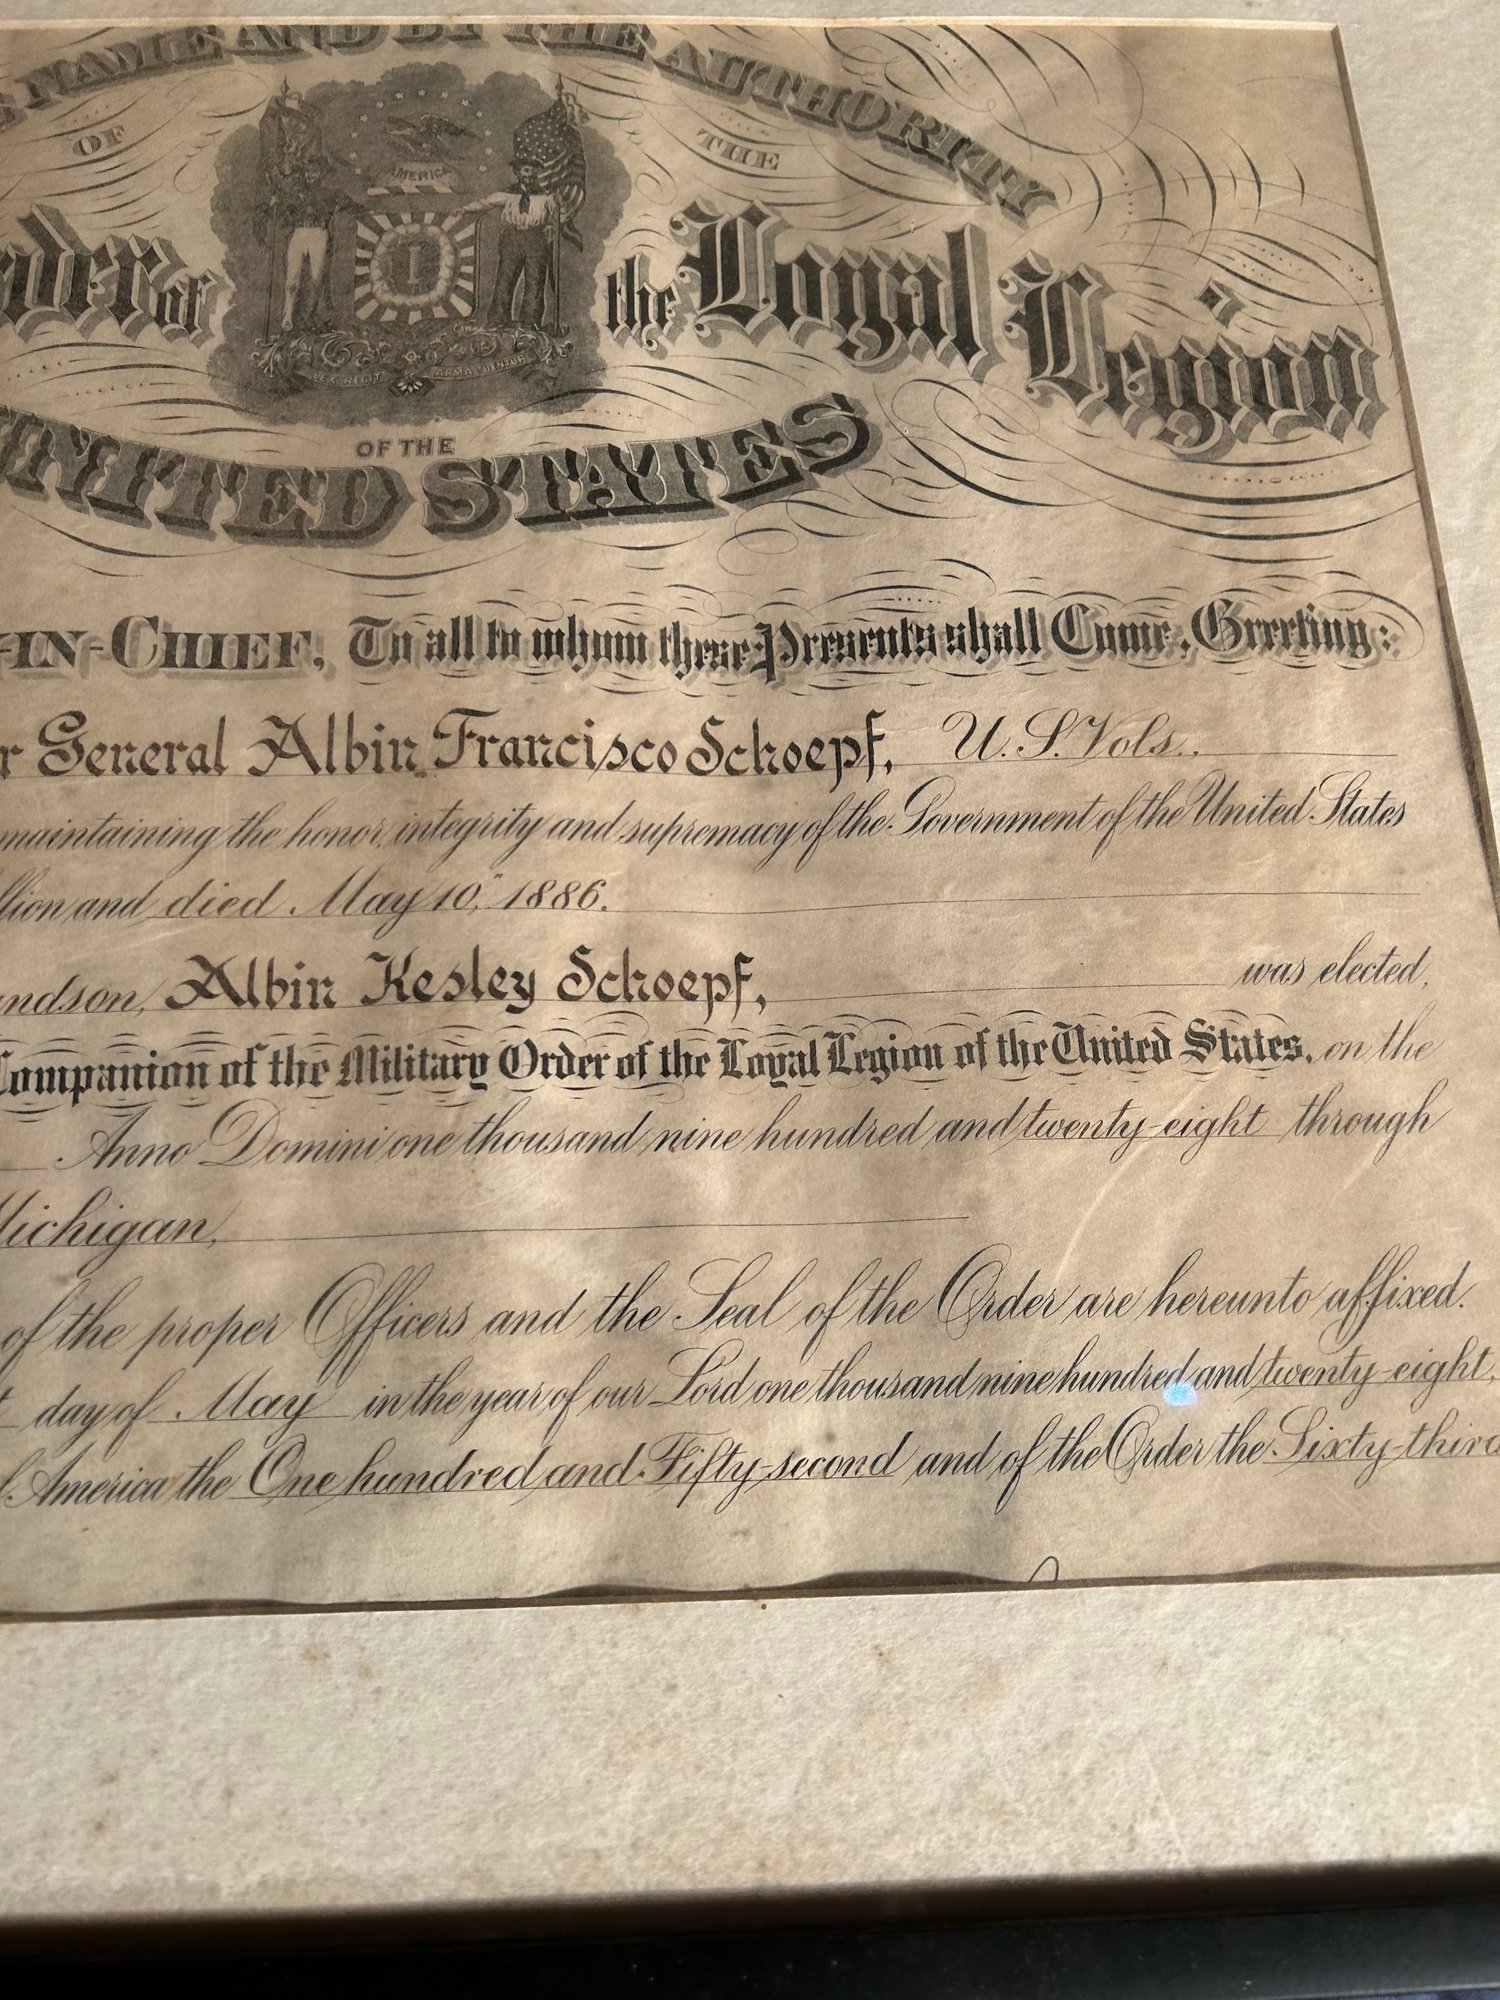 NAME AND BY THE AUTHORITY
OF THE
AMERICA
of the Loyal Legion
LEX REGIT ARMA TUENTUR
OF THE
UNITED STATES
-IN-CHIEF, To all to whom these Presents shall Come, Greeting:
r General Albin Francisco Schoepf, U.S. Vols.,
maintaining the honor, integrity and supremacy of the Government of the United States
llion and died May 10," 1886.
ndson, Albin Kesley Schoepf, was elected,
Companion of the Military Order of the Loyal Legion of the United States, on the
Anno Domini one thousand nine hundred and twenty-eight through
Michigan,
of the proper Officers and the Seal of the Order are hereunto affixed.
t day of May in the year of our Lord one thousand nine hundred and twenty-eight,
America the One hundred and Fifty-second and of the Order the Sixty-third